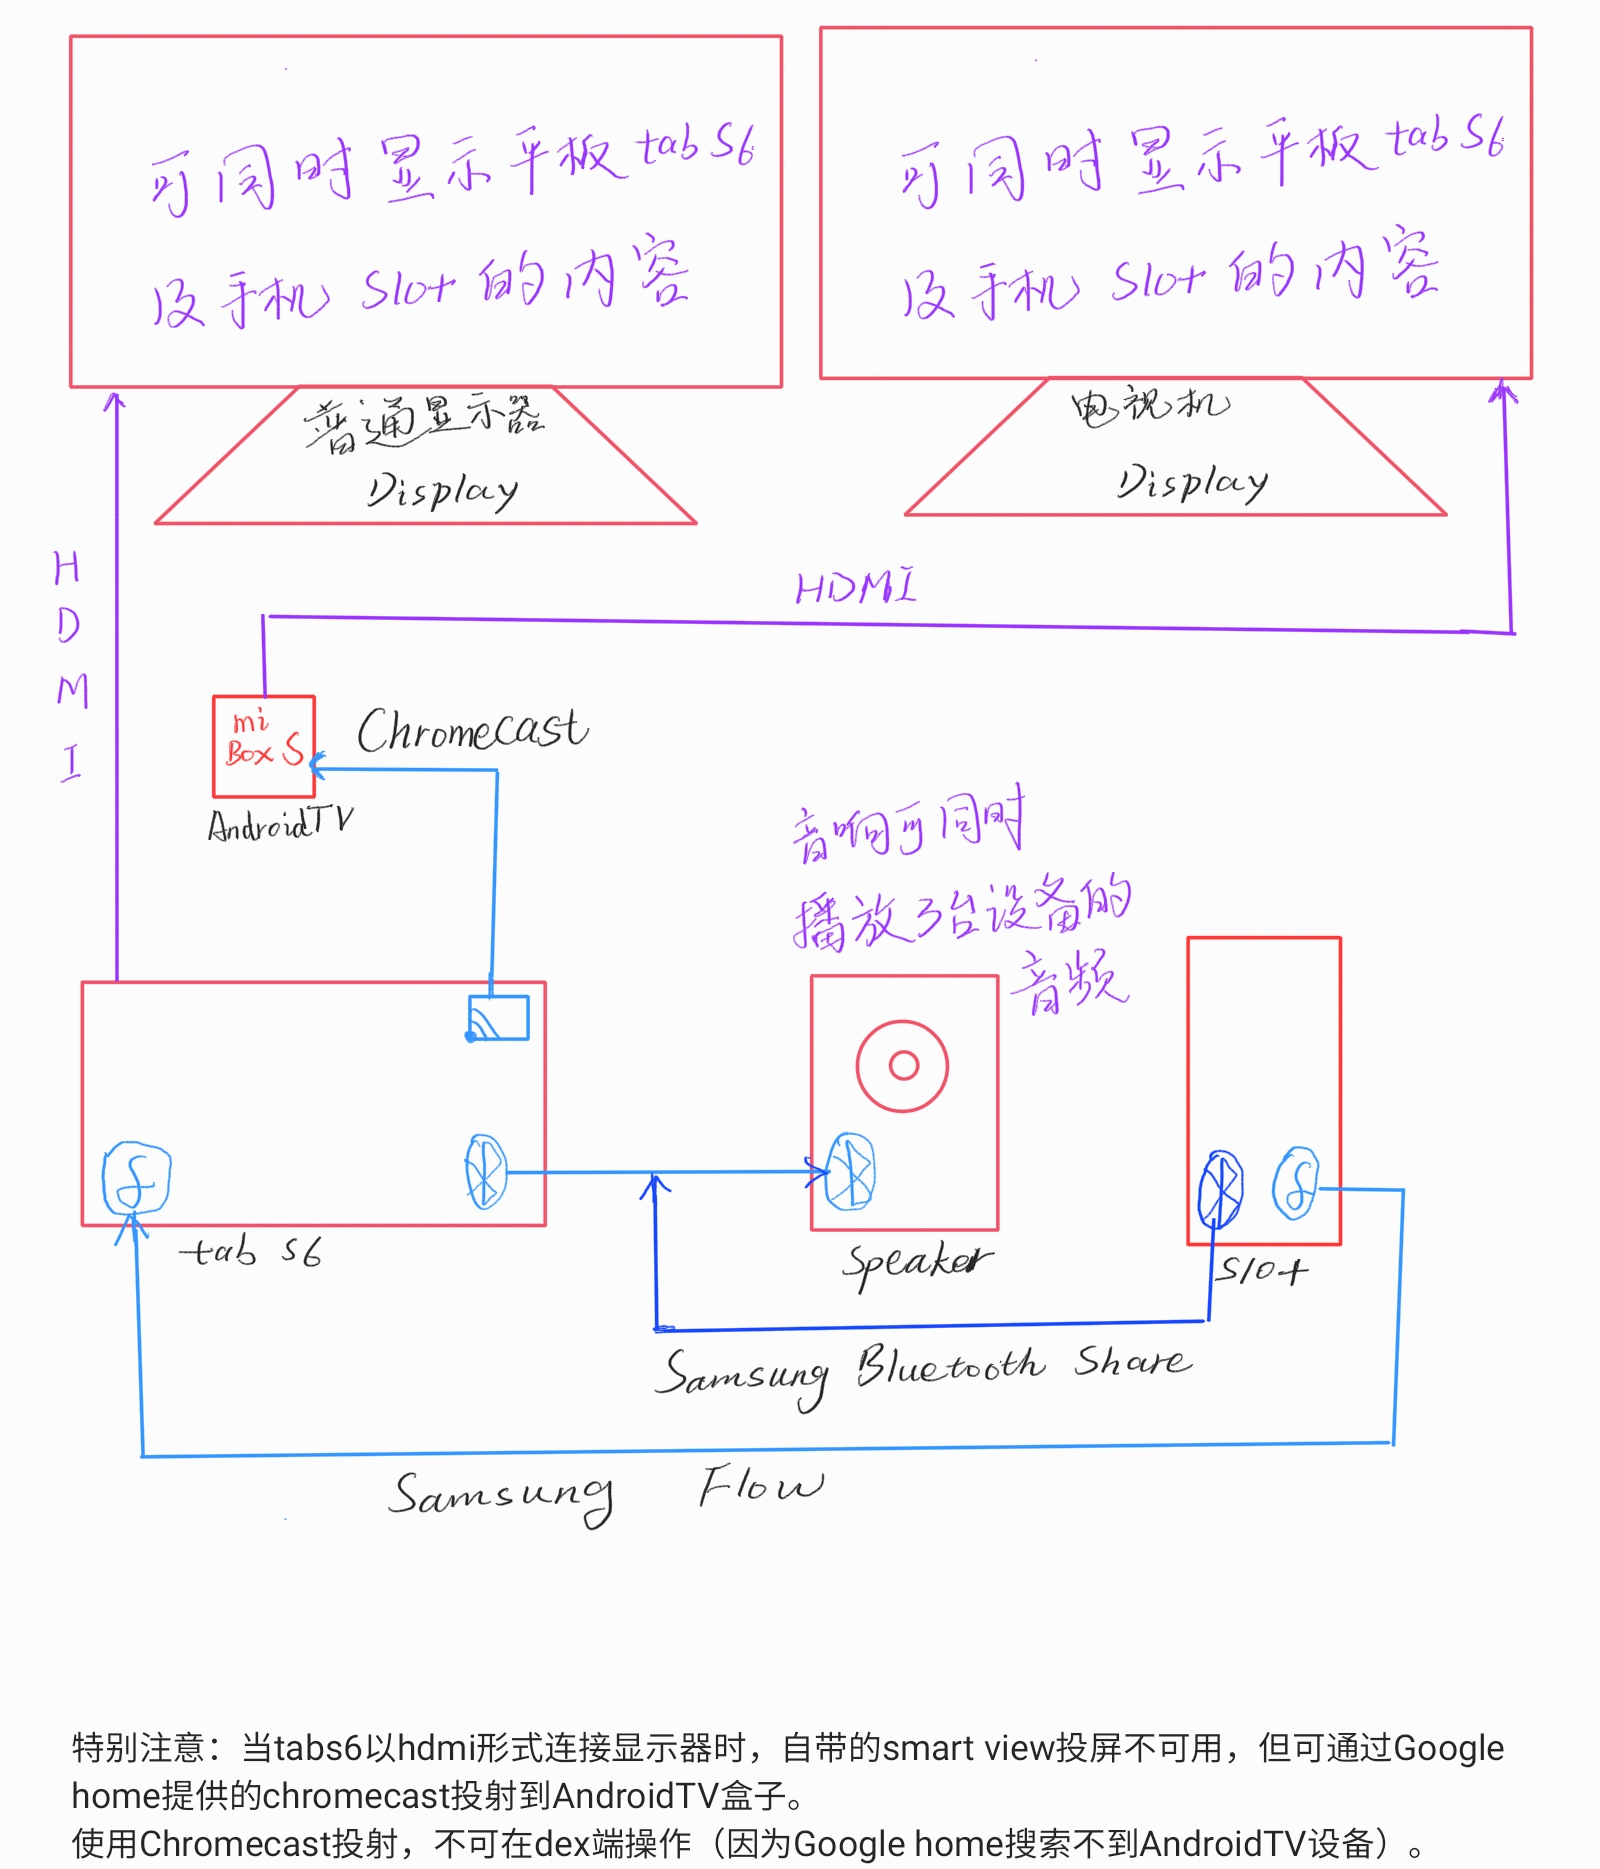 可同时显示平板tab S6
及手机 S10+ 的内容
可同时显示平板tab S6
及手机 S10+ 的内容
普通显示器
Display
电视机
Display
HDMI
HDMI
mi
Box S
Chromecast
AndroidTV
音响可同时
播放3台设备的
音频
tab S6
Speaker
S10+
Samsung Bluetooth Share
Samsung Flow
特别注意：当tabs6以hdmi形式连接显示器时，自带的smart view投屏不可用，但可通过Google
home提供的chromecast投射到AndroidTV盒子。
使用Chromecast投射，不可在dex端操作（因为Google home搜索不到AndroidTV设备）。